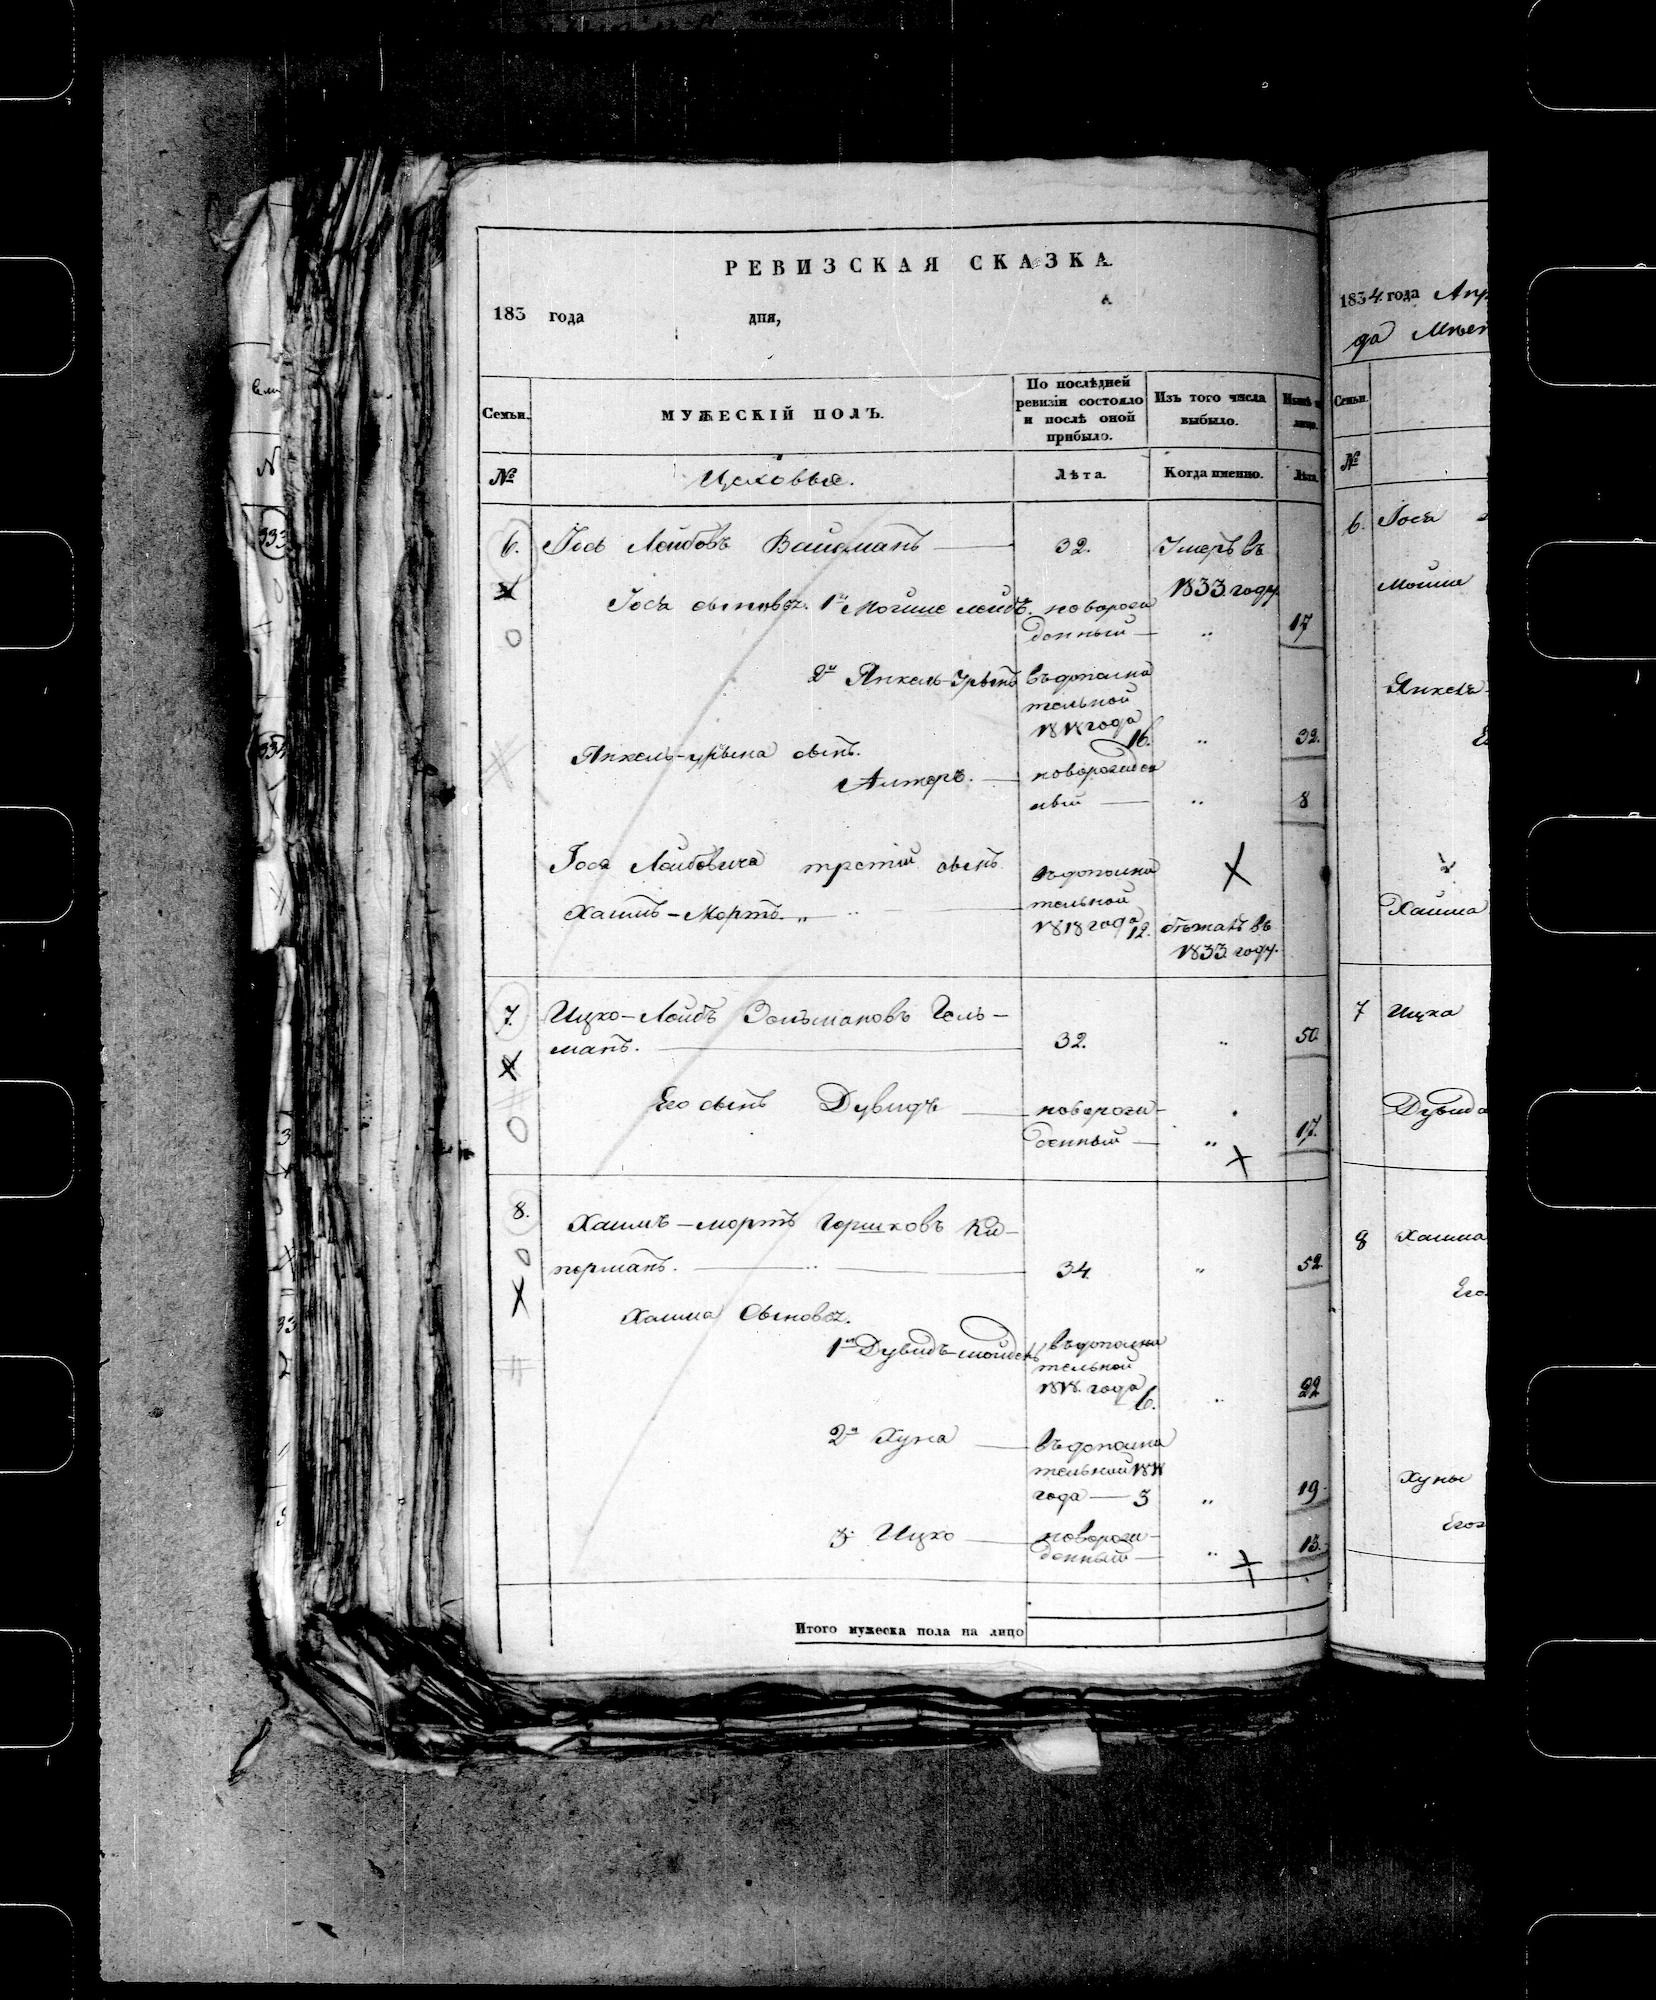 РЕВИЗСКАЯ СКАЗКА
183 года дня,
Семьи.
МУЖЕСКІЙ ПОЛЪ.
По послѣдней
ревизіи состояло
и послѣ оной
прибыло.
Изъ того числа
выбыло.
№
Цеховые.
Лѣта.
Когда именно.
Лѣта
6. Іось Лейбовъ Вайсманъ 32. Умеръ въ
1833 году.
Іося сыновья. 1й Мошие лейбъ. новорож
денный 17
2й Янкель-Урынъ въ дополни
тельной
1818 года
16. 32.
Янкель-Урына сынъ.
Алтеръ. новорожден
ный 8
Іося Лейбовича третій сынъ въ дополни
тельной
Хаимъ-Мортъ 1818 года 12. бежалъ въ
1833 году.
7. Ицко-Лейбъ Зельмановъ Гель-
манъ. 32. 50
Его сынъ Дувидъ новорож-
денный 17.
8. Хаимъ-мортъ Гершковъ Ки-
перманъ. 34. 52
Хаима Сыновья.
1й Дувидъ въ дополни
тельной
1818. года
6. 22
2й Хуна въ дополни
тельной 1818
года — 3 19
3й Ицко новорож-
денный 13.
Итого мужеска пола на лицо
1834 года Апр
да
Семьи.
№
6. Іося
Мошие
Янкеля
Хаима
7 Ицка
Дувида
8 Хаима
Его
Хуны
Его